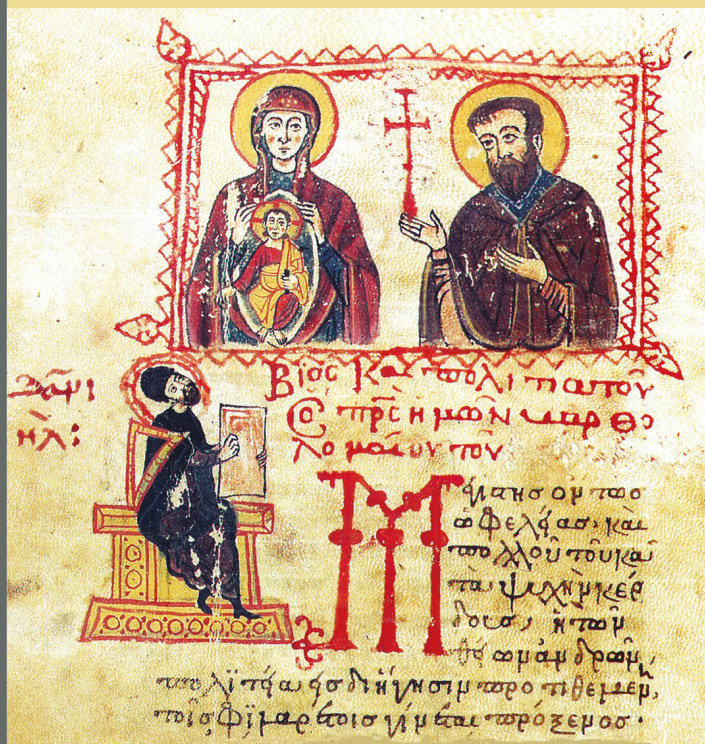 Δανι
ὴλ:
Βίος καὶ πολιτία τοῦ
Ὁσ πρς ἡμῶν βαρθο
λομαίου τοῦ
Μ ὄντως
ὠφελείας· καὶ
πολλοῦ τοῦ κα
τὰ ψυχὴν κέρ
δους, ἡ τῶν
ἀνδρῶν,
πολϊτεία εἰς διήγησιν προτιθεμέν
τοῖς φϊλαρέτοις γίνεται πρόξενος·